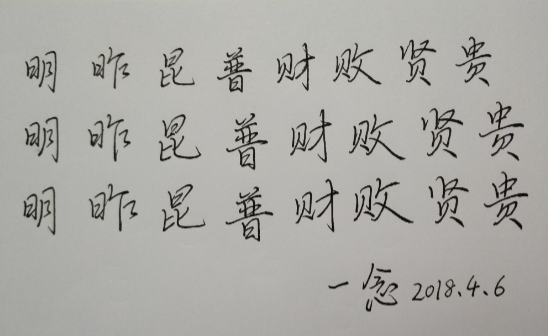 明昨昆普财败贤贵
明昨昆普财败贤贵
明昨昆普财败贤贵
一念 2018.4.6